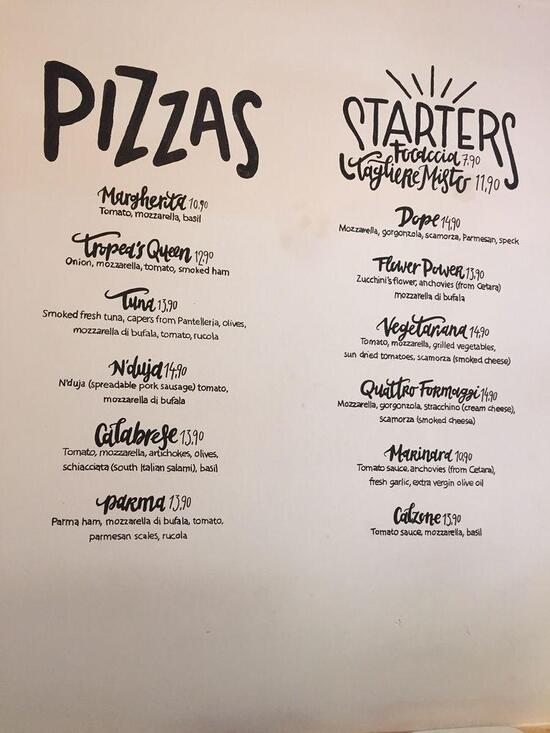 PIZZAS
Margherita 10,90
Tomato, mozzarella, basil
Tropea's Queen 12,90
Onion, mozzarella, tomato, smoked ham
Tuna 13,90
Smoked fresh tuna, capers from Pantelleria, olives,
mozzarella di bufala, tomato, rucola
N'duja 14,90
N'duja (spreadable pork sausage) tomato,
mozzarella di bufala
Calabrese 13,90
Tomato, mozzarella, artichokes, olives,
schiacciata (south Italian salami), basil
parma 13,90
Parma ham, mozzarella di bufala, tomato,
parmesan scales, rucola
STARTERS
Focaccia 7,90
Tagliere Misto 11,90
Dope 14,90
Mozzarella, gorgonzola, scamorza, Parmesan, speck
Flower Power 13,90
Zucchini's flower, anchovies (from Cetara)
mozzarella di bufala
Vegetariana 14,90
Tomato, mozzarella, grilled vegetables,
sun dried tomatoes, scamorza (smoked cheese)
Quattro Formaggi 14,90
Mozzarella, gorgonzola, stracchino (cream cheese),
scamorza (smoked cheese)
Marinara 10,90
Tomato sauce, anchovies (from Cetara),
fresh garlic, extra vergin olive oil
Calzone 13,90
Tomato sauce, mozzarella, basil